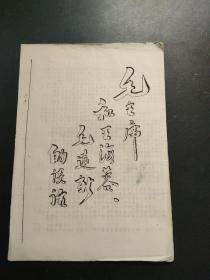 毛主席
和王海蓉、
毛远新
的谈话